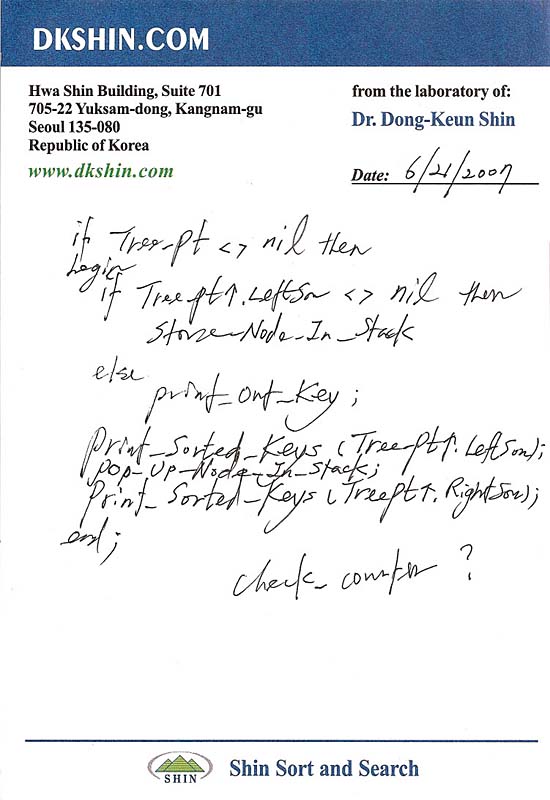 DKSHIN.COM
Hwa Shin Building, Suite 701
705-22 Yuksam-dong, Kangnam-gu
Seoul 135-080
Republic of Korea
www.dkshin.com
from the laboratory of:
Dr. Dong-Keun Shin
Date: 6/21/2007
if Tree-pt <> nil then
begin
if Treept↑.LeftSon <> nil then
Store-Node-In_Stack
else
print_out_Key;
Print_Sorted_Keys (Tree-pt↑.LeftSon);
POP-Up-Node-In_Stack;
Print_Sorted_Keys (Treept↑.RightSon);
end;
check_counter ?
SHIN
Shin Sort and Search